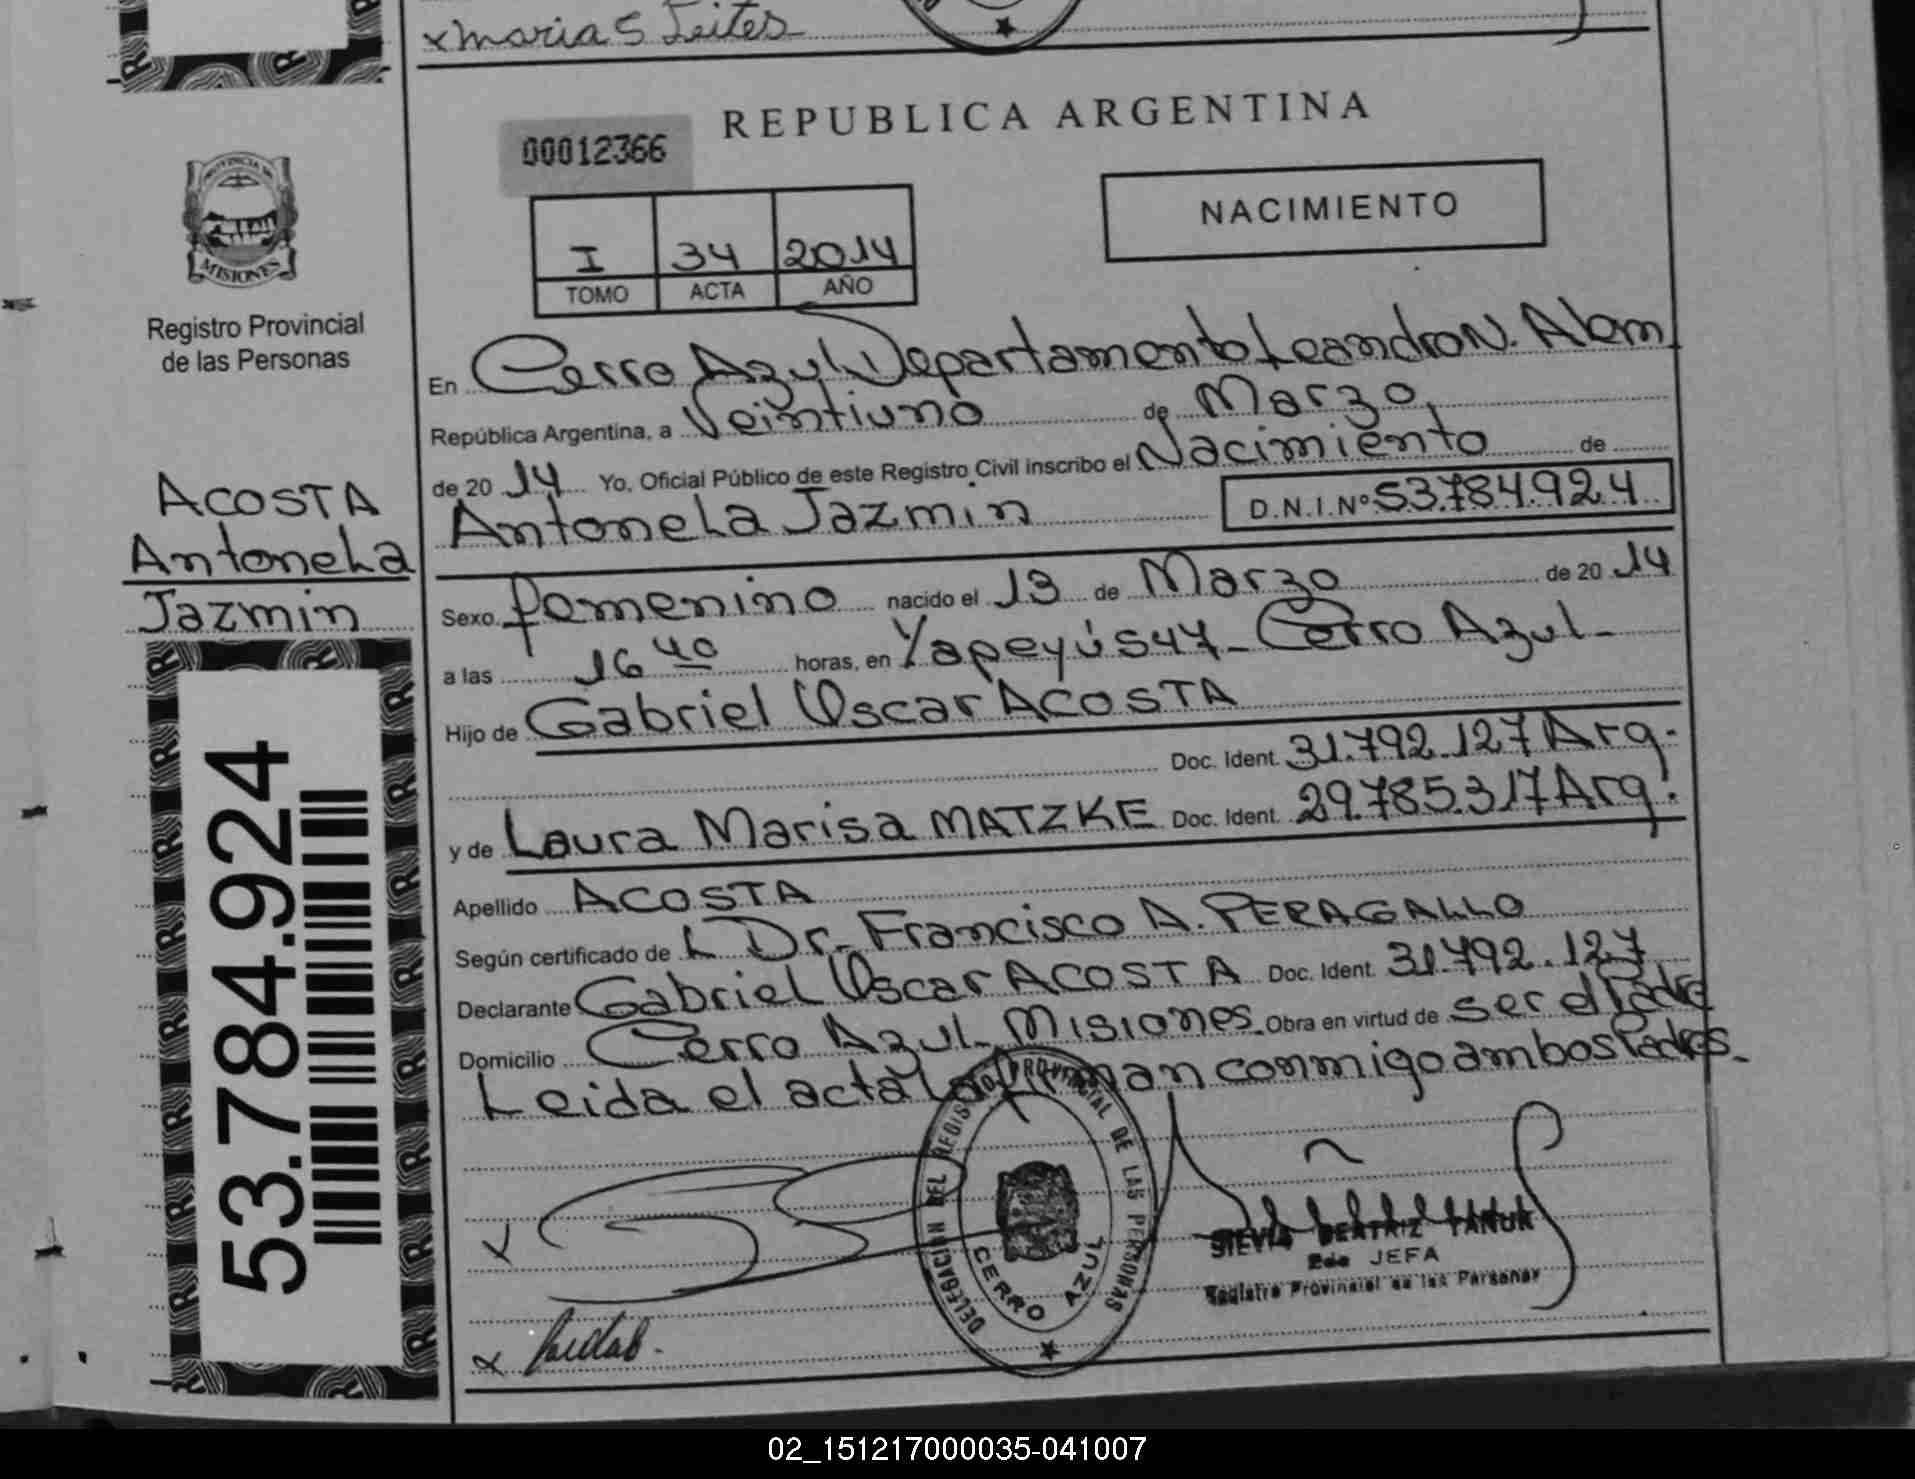 x maria S Leites
REPUBLICA ARGENTINA
00012366
NACIMIENTO
I 34 2014
TOMO ACTA AÑO
PROVINCIA DE
MISIONES
Registro Provincial
de las Personas
ACOSTA
Antonela
Jazmin
53.784.924
En Cerro Azul Departamento Leandro N. Alem
República Argentina, a Veintiuno de Marzo,
de 2014 Yo, Oficial Público de este Registro Civil inscribo el Nacimiento de
Antonela Jazmin D.N.I.Nº 53.784.924
Sexo femenino nacido el 13 de Marzo de 2014
a las 16 40 horas, en Yapeyú 547 - Cerro Azul -
Hijo de Gabriel Oscar ACOSTA
Doc. Ident. 31.792.127 Arg.
y de Laura Marisa MATZKE Doc. Ident. 29.785.317 Arg.
Apellido ACOSTA
Según certificado de L Dr. Francisco A. PERAGALLO
Declarante Gabriel Oscar ACOSTA Doc. Ident. 31.792.127
Domicilio Cerro Azul - Misiones. Obra en virtud de ser el Padre
Leida el acta la firman conmigo ambos Padres.
DELEGACION DEL REGISTRO PROVINCIAL DE LAS PERSONAS
CERRO AZUL
SILVIA BEATRIZ
2da JEFA
Registro Provincial de las Personas
x
x
02_151217000035-041007